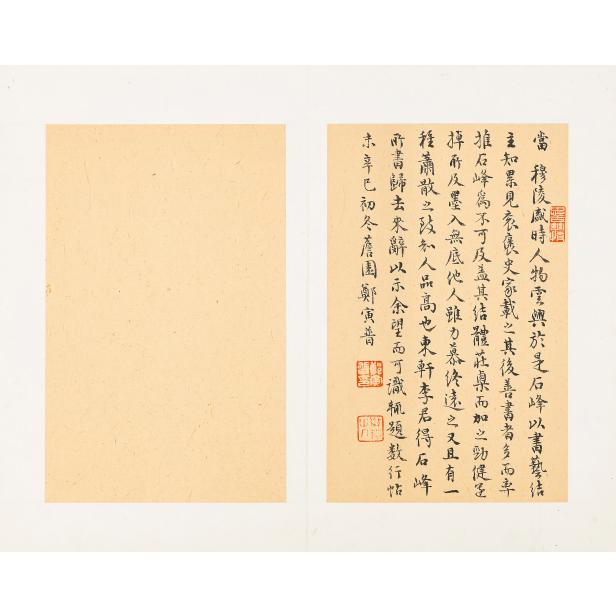 當 穆陵盛時人物雲興於是石峰以書藝結
主知累見衮褒史家載之其後善書者多而專
推石峰爲不可及盖其結體莊㮚而加之勁健筆
掉所及墨入無底他人雖力慕終遠之又且有一
種蕭散之致知人品高也東軒李君得石峰
所書歸去來辭以示余望而可識輒題數行帖
末辛巳初冬蒼園鄭寅普